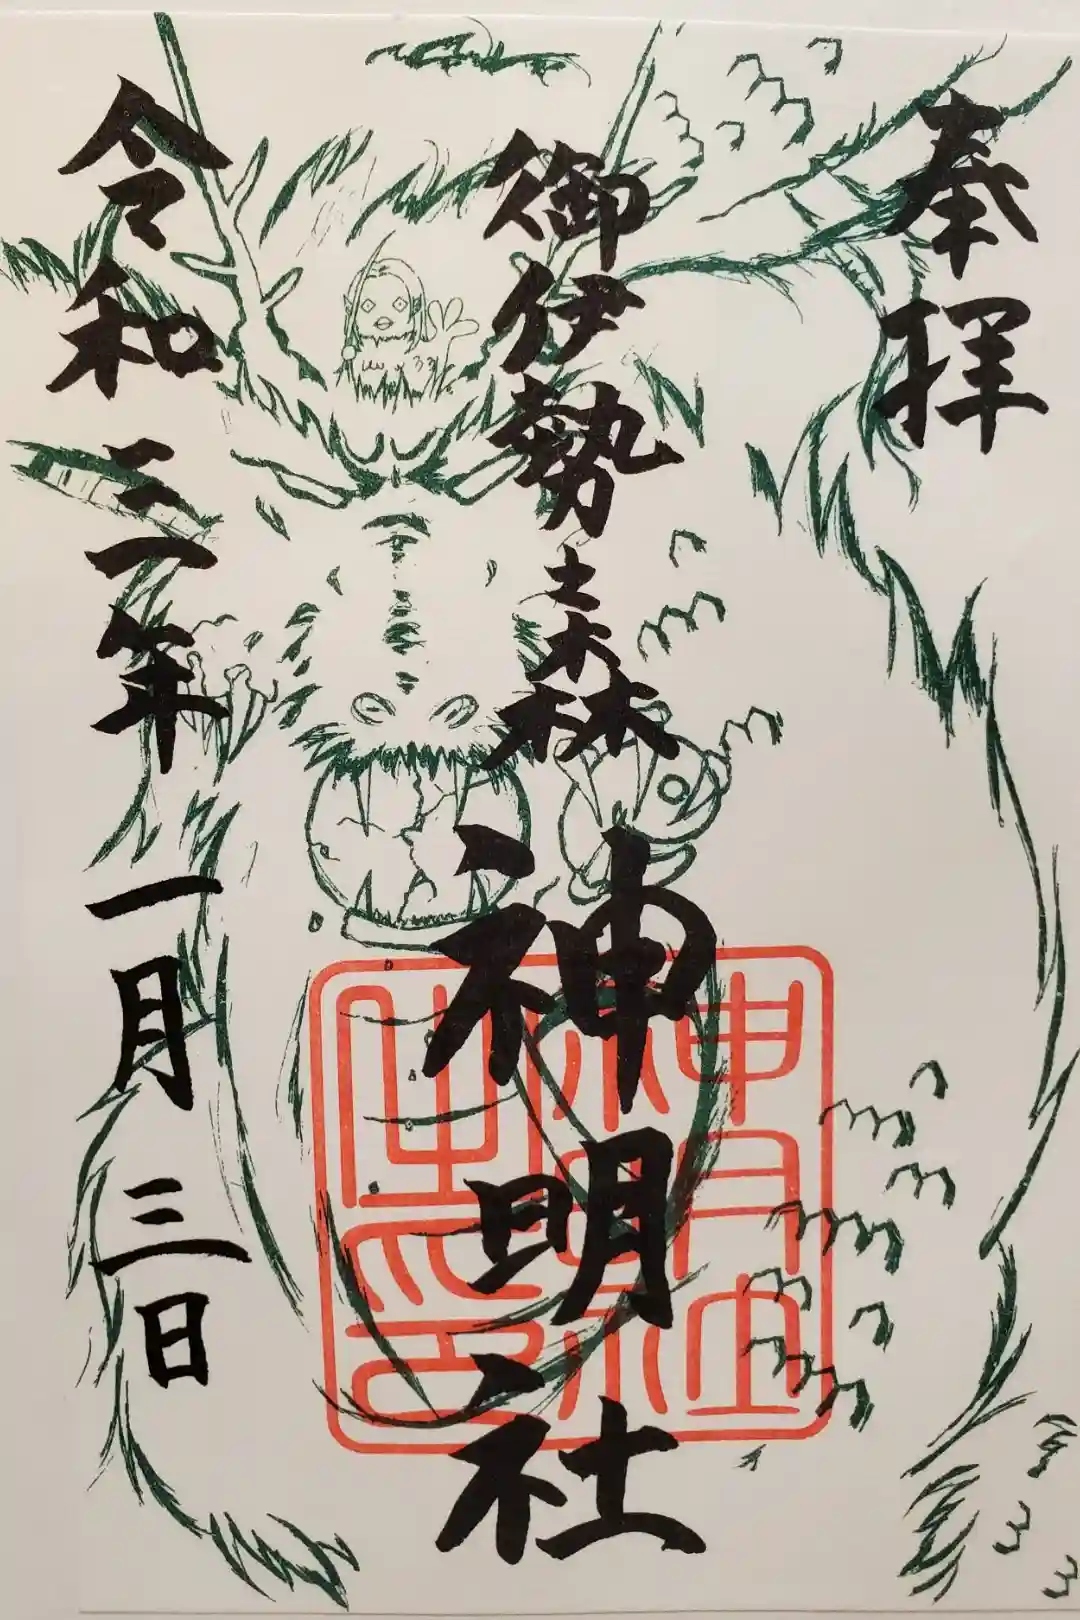 奉拝
御伊勢森
神明社
令和三年一月三日
神明社之印